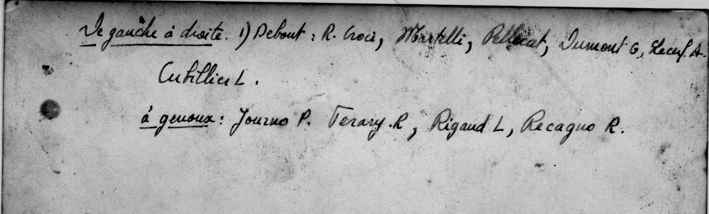 De gauche à droite. 1) Debout : R. Croci, Martelli, Pellecat, Dumont G,
Cubillier L.
à genoux : Journo P. Terary. R, Rigaud L, Recagno R.